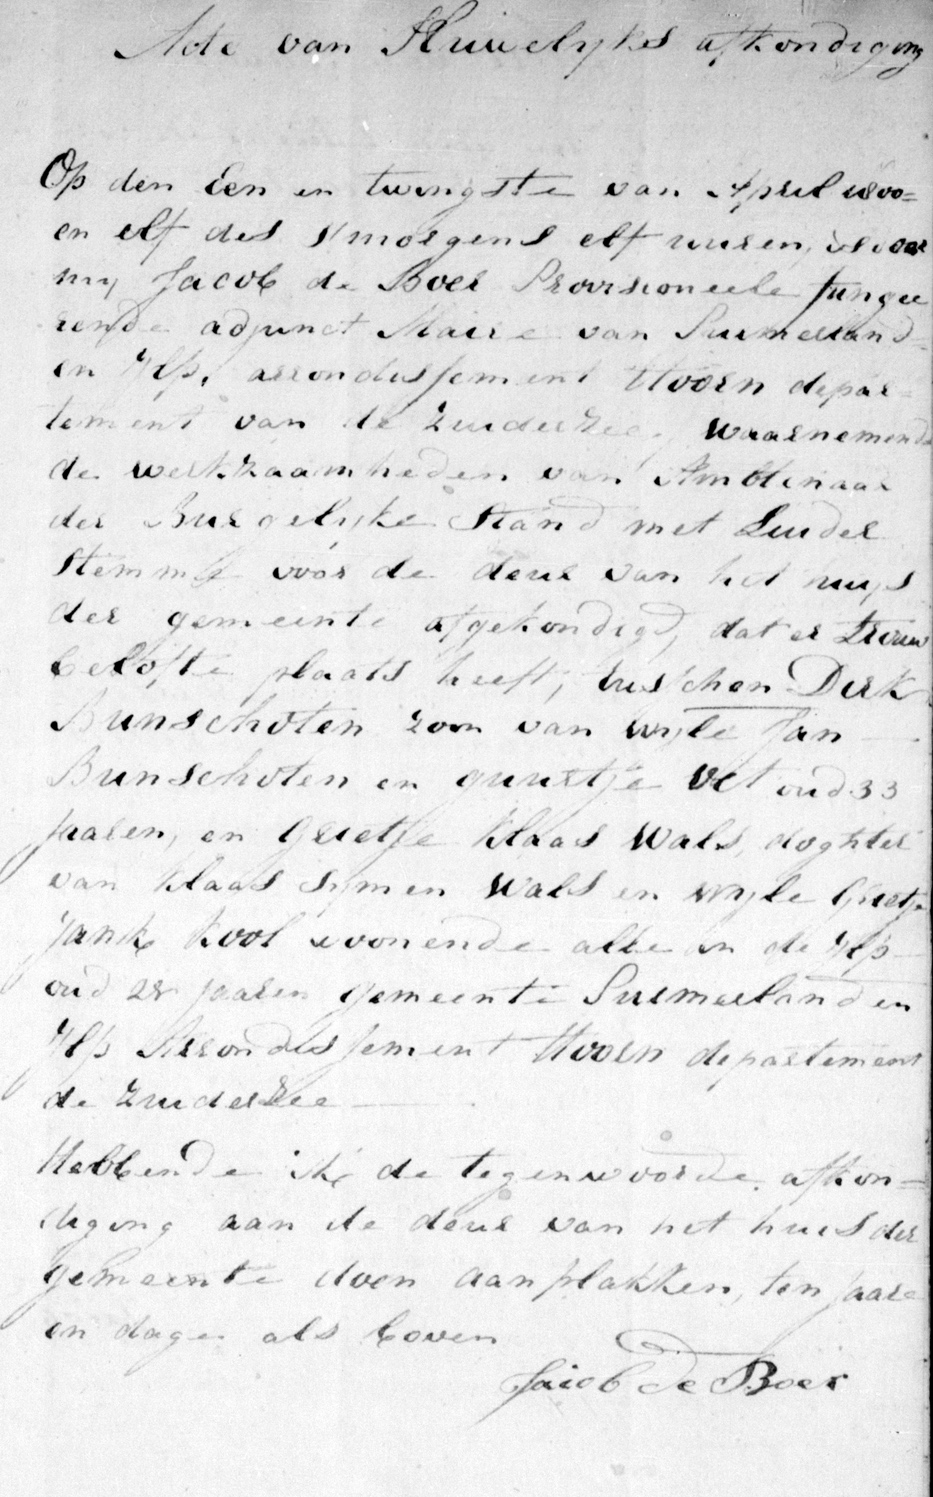 Acte van Huwelyks afkondiging
Op den Een en twingste van April 1800=
en elf des smorgens elf uuren, voor
my Jacob de Boer Provisioneele fungee
rende adjunct Maire van Purmerland=
en Ylp, arrondissement Hoorn depar=
tement van de Zuiderzee, waarnemende
de werkzaamheden van Ambtenaar
der Burgelyke Stand met Luider
Stemme voor de deur van het huys
der gemeente afgekondigd, dat er trouw
belofte plaats heeft, tusschen Dirk
Bunschoten zoon van wyle Jan —
Bunschoten en guurtje Vet oud 33
jaaren, en Grietje Klaas Wals, doghter
van Klaas Symen Wals en wyle Grietje
Jansz Kool woonende alle in de Ylp —
oud 28 jaaren gemeente Purmerland en
Ylp Arrondissement Hoorn departement
de Zuiderzee —
Hebbende ik de tegenwoorde afkon=
diging aan de deur van het huis der
gemeente doen aanplakken, ten jaare
en dage als boven
Jacob De Boer